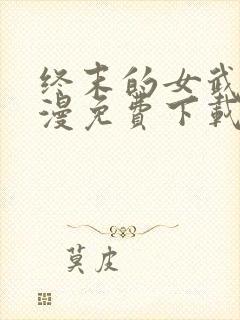 终末的女武
漫免费下载
莫皮